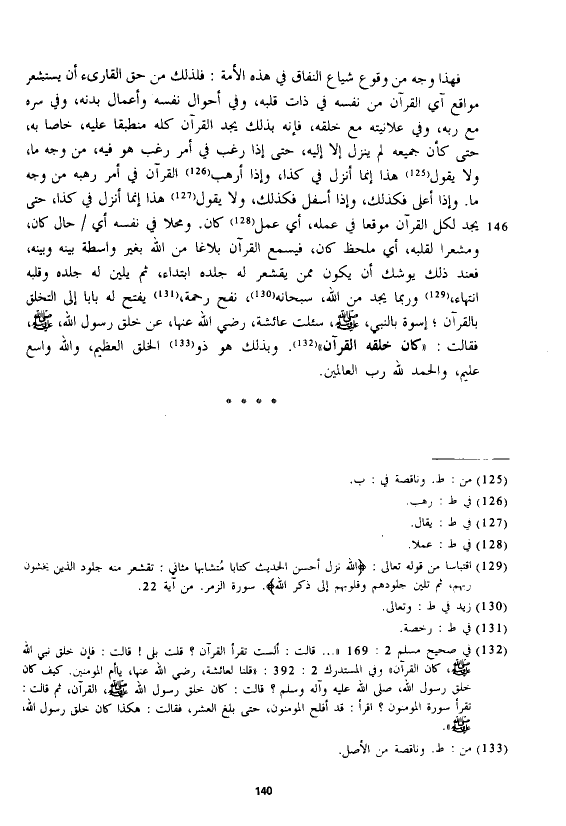 فهذا وجه من وقوع شياع النفاق في هذه الأمة : فلذلك من حق القارىء أن يستشعر
مواقع آي القرآن من نفسه في ذات قلبه، وفي أحوال نفسه وأعمال بدنه، وفي سره
مع ربه، وفي علانيته مع خلقه، فإنه بذلك يجد القرآن كله منطبقا عليه، خاصا به،
حتى كأن جميعه لم ينزل إلا إليه، حتى إذا رغب في أمر رغب هو فيه، من وجه ما،
ولا يقول(125) هذا إنما أنزل في كذا، وإذا أرهب(126) القرآن في أمر رهبه من وجه
ما. وإذا أعلى فكذلك، وإذا أسفل فكذلك، ولا يقول(127) هذا إنما أنزل في كذا، حتى
146 يجد لكل القرآن موقعا في عمله، أي عمل(128) كان. ومحلا في نفسه أي / حال كان،
ومشعرا لقلبه، أي ملحظ كان، فيسمع القرآن بلاغا من الله بغير واسطة بينه وبينه،
فعند ذلك يوشك أن يكون ممن يقشعر له جلده ابتداء، ثم يلين له جلده وقلبه
انتهاء،(129) وربما يجد من الله، سبحانه(130)، نفح رحمة،(131) يفتح له بابا إلى التخلق
بالقرآن ؛ إسوة بالنبي، ﷺ، سئلت عائشة، رضي الله عنها، عن خلق رسول الله، ﷺ،
فقالت : «كان خلقه القرآن»(132). وبذلك هو ذو(133) الخلق العظيم، والله واسع
عليم، والحمد لله رب العالمين.
* * * *
(125) من : ط. وناقصة في : ب.
(126) في ط : رهب.
(127) في ط : يقال.
(128) في ط : عملا.
(129) اقتباسا من قوله تعالى : ﴿الله نزل أحسن الحديث كتابا مُتشابها مثاني : تقشعر منه جلود الذين يخشون
ربهم، ثم تلين جلودهم وقلوبهم إلى ذكر الله﴾. سورة الزمر. من آية 22.
(130) زيد في ط : وتعالى.
(131) في ط : رخصة.
(132) في صحيح مسلم 2 : 169 «... قالت : ألست تقرأ القرآن ؟ قلت بلى ! قالت : فإن خلق نبي الله
ﷺ، كان القرآن» وفي المستدرك 2 : 392 : «قلنا لعائشة، رضي الله عنها، ياأم المومنين. كيف كان
خلق رسول الله، صلى الله عليه وآله وسلم ؟ قالت : كان خلق رسول الله ﷺ، القرآن، ثم قالت :
تقرأ سورة المومنون ؟ اقرأ : قد أفلح المومنون، حتى بلغ العشر، فقالت : هكذا كان خلق رسول الله،
ﷺ».
(133) من : ط. وناقصة من الأصل.
140